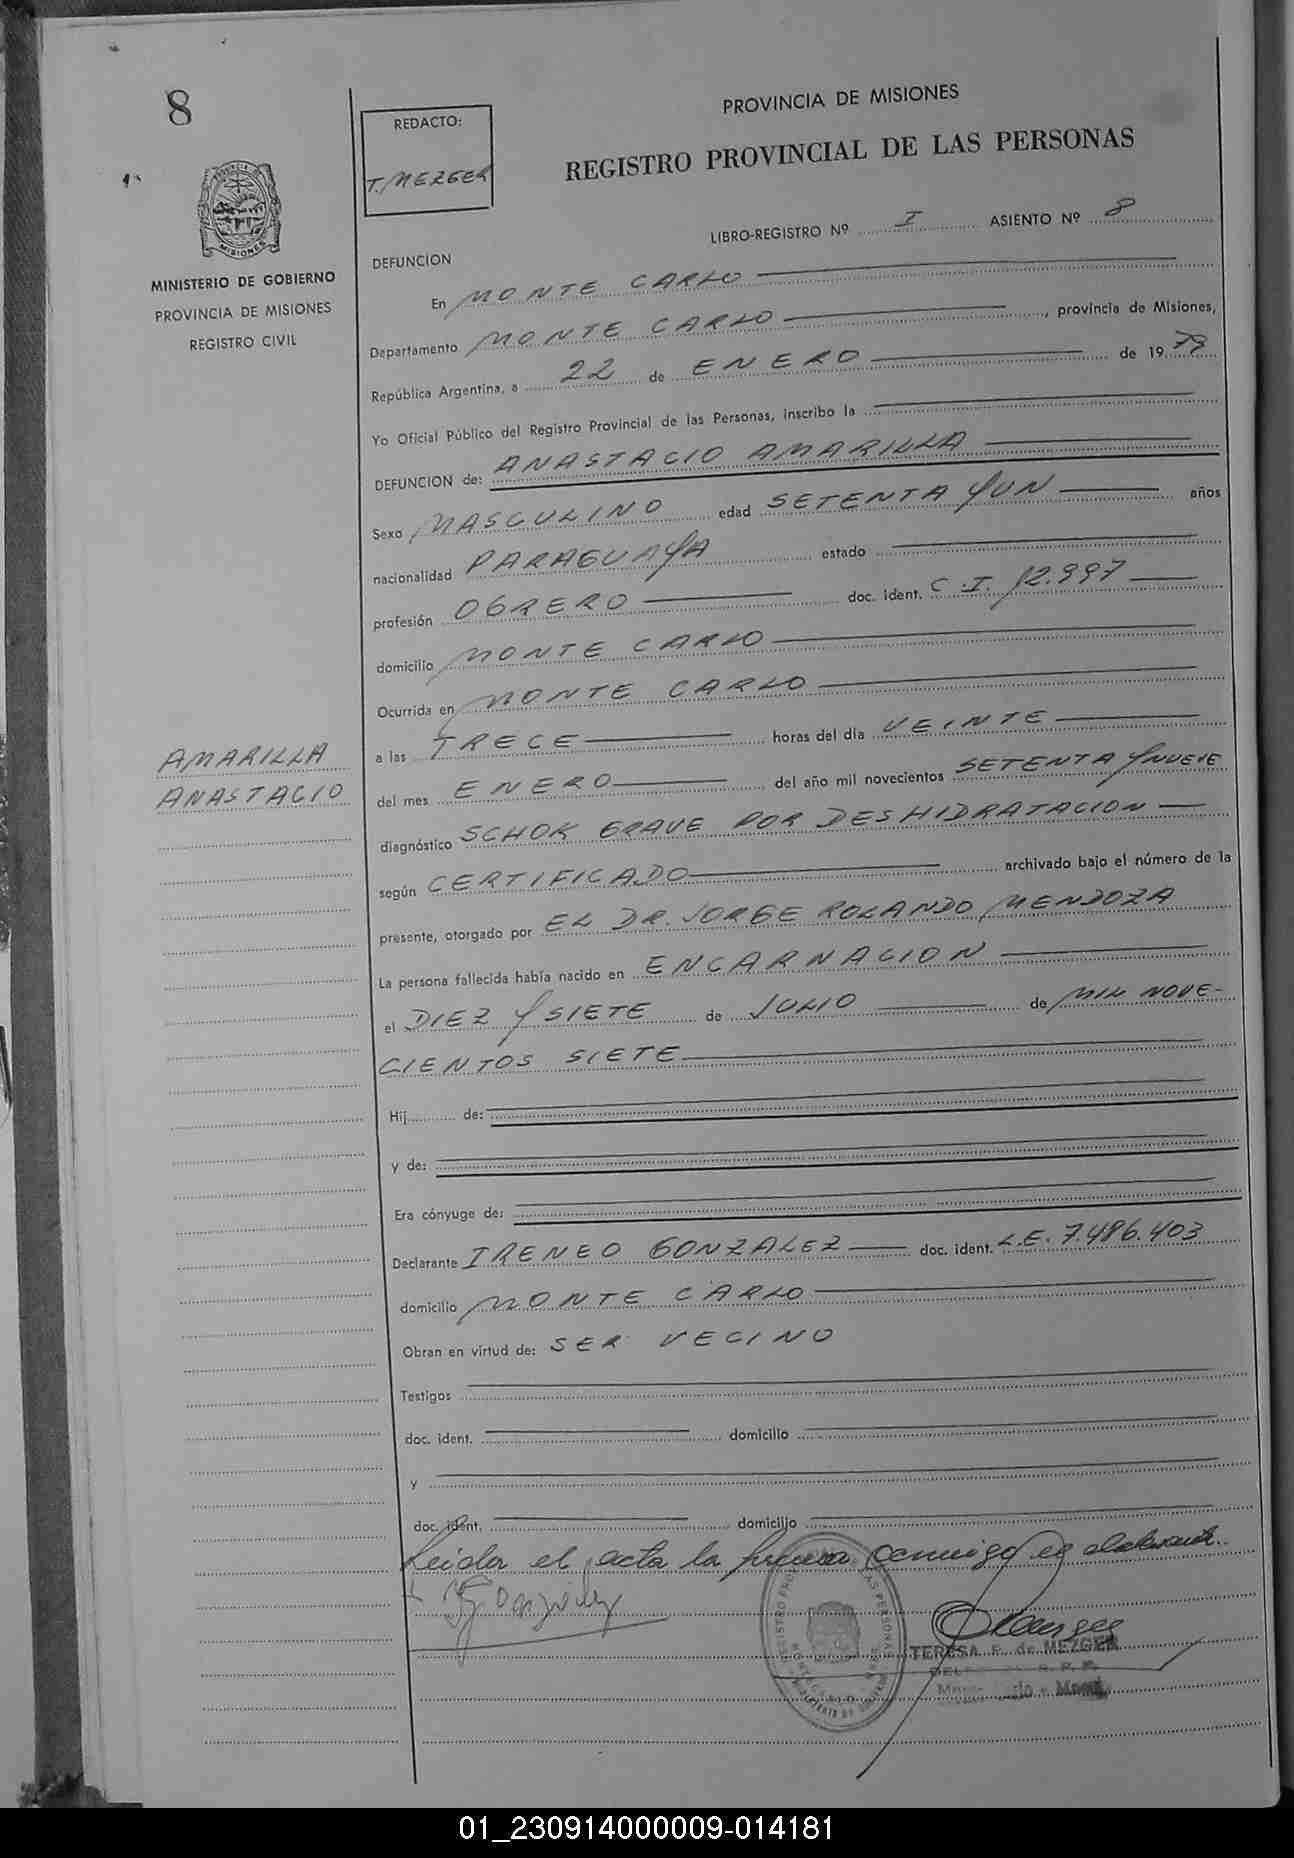 8
PROVINCIA DE MISIONES
REGISTRO PROVINCIAL DE LAS PERSONAS
REDACTO:
T. MEZGER
MISIONES
MINISTERIO DE GOBIERNO
PROVINCIA DE MISIONES
REGISTRO CIVIL
LIBRO-REGISTRO Nº I ASIENTO Nº 8
DEFUNCION
En MONTE CARLO
Departamento MONTE CARLO, provincia de Misiones,
República Argentina, a 22 de ENERO de 1979
Yo Oficial Público del Registro Provincial de las Personas, inscribo la
DEFUNCION de: ANASTACIO AMARILLA
Sexo MASCULINO edad SETENTA Y UN años
nacionalidad PARAGUAYA estado
profesión OBRERO doc. ident. C.I. 12.997
domicilio MONTE CARLO
Ocurrida en MONTE CARLO
a las TRECE horas del día VEINTE
del mes ENERO del año mil novecientos SETENTA Y NUEVE
AMARILLA
ANASTACIO
diagnóstico SCHOK GRAVE POR DESHIDRATACION
según CERTIFICADO archivado bajo el número de la
presente, otorgado por EL DR. JORGE ROLANDO MENDOZA
La persona fallecida había nacido en ENCARNACION
el DIEZ Y SIETE de JULIO de MIL NOVE-
CIENTOS SIETE
Hij de:
y de:
Era cónyuge de:
Declarante IRENEO GONZALEZ doc. ident. L.E. 7.486.403
domicilio MONTE CARLO
Obran en virtud de: SER VECINO
Testigos
doc. ident. domicilio
y
doc. ident. domicilio
Leida el acta la firma conmigo el declarante.
TERESA F. de MEZGER
01_230914000009-014181